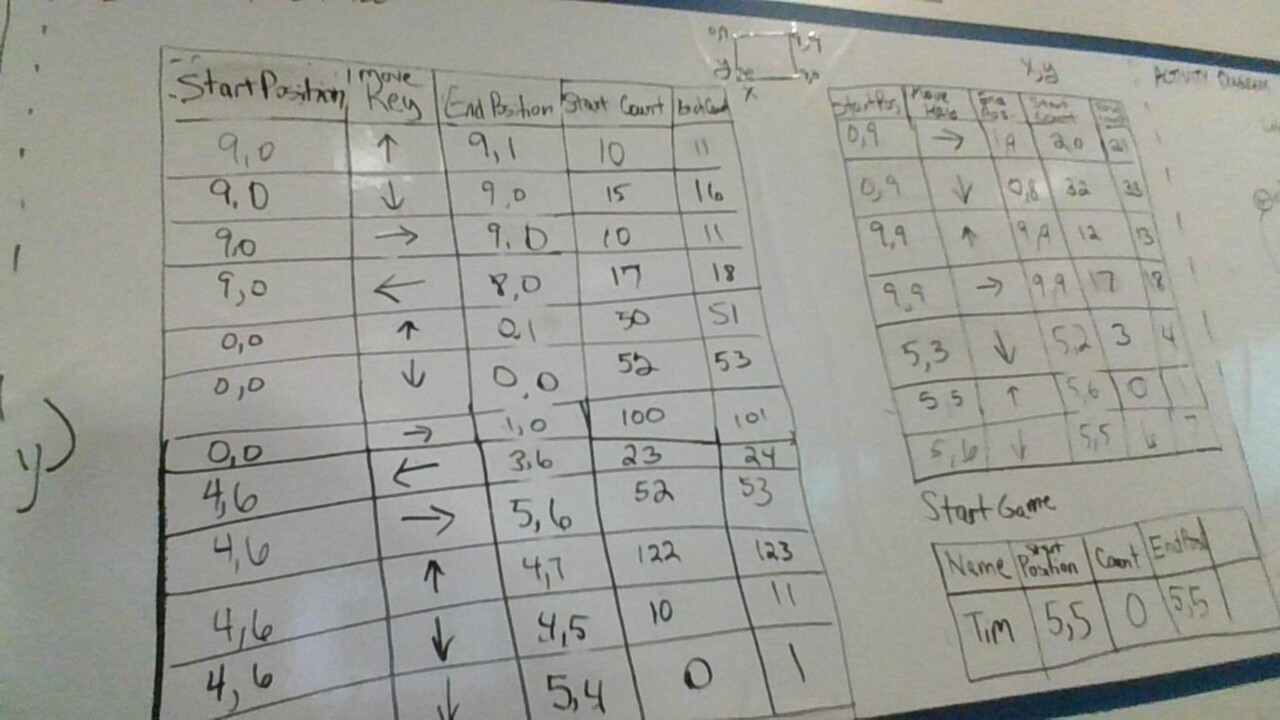 Start Position Move Key End Position Start Count End Count
9,0 ↑ 9,1 10 11
9,0 ↓ 9,0 15 16
9,0 → 9,0 10 11
9,0 ← 8,0 17 18
0,0 ↑ 0,1 50 51
0,0 ↓ 0,0 52 53
0,0 → 1,0 100 101
4,6 ← 3,6 23 24
4,6 → 5,6 52 53
4,6 ↑ 4,7 122 123
4,6 ↓ 4,5 10 11
↓ 5,4 0 1
y)
9,9
y
x
x,y
ACTIVITY DIAGRAM
Start Pos, Move End Pos. Start Count
0,9 → 1,9 20 21
0,9 ↓ 0,8 32 33
9,9 ↑ 9,9 12 13
9,9 → 9,9 17 18
5,3 ↓ 5,2 3 4
5,5 ↑ 5,6 0 1
5,6 ↓ 5,5 6 7
Start Game
Name Start Position Count End Pos
Tim 5,5 0 5,5